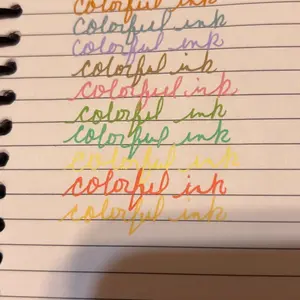 colorful ink
colorful ink
colorful ink
colorful ink
colorful ink
colorful ink
colorful ink
colorful ink
colorful ink
colorful ink